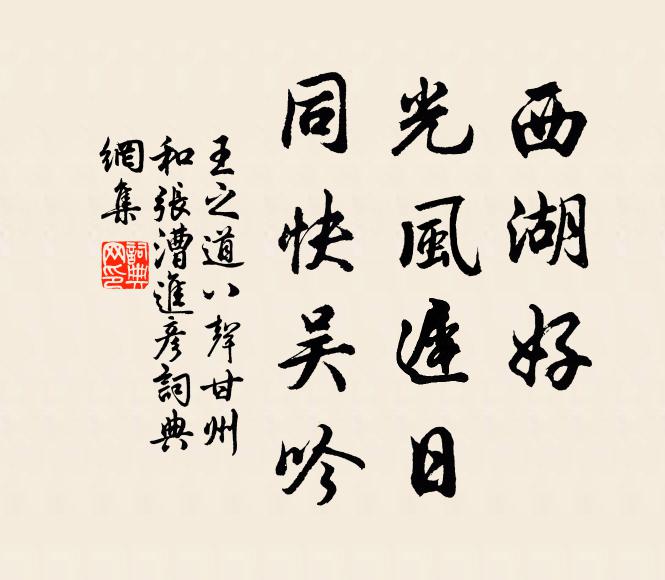 西湖好
光風遲日
同快吴吟
王之道八聲甘州
和張漕進彦詞典
網集
詞典網印